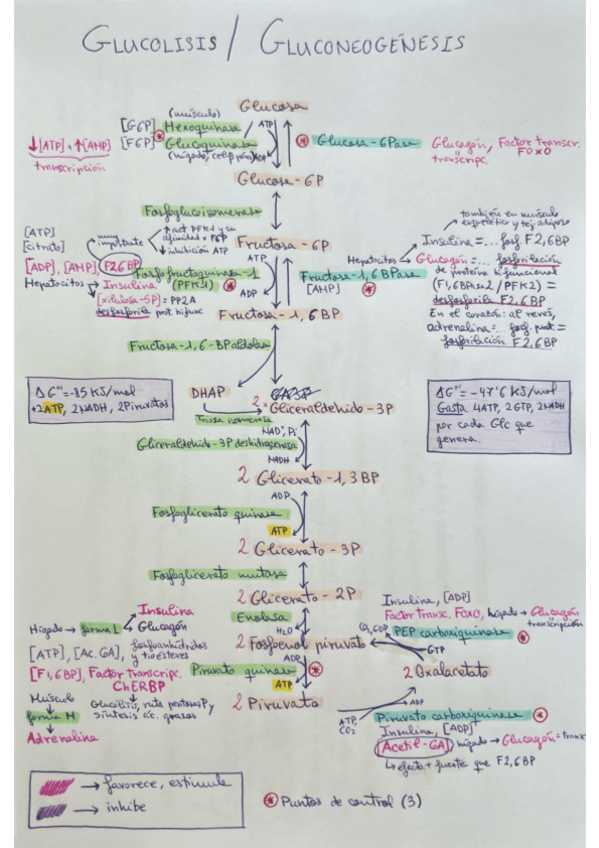 GLUCOLISIS / GLUCONEOGÉNESIS
(músculo)
Glucosa
[G6P] Hexoquinasa
ATP
[F6P] Glucoquinasa
(hígado, célβ páncr) ADP
↓[ATP], ↑[AMP]
transcripción
Glucosa-6Pasa
Glucagón, Factor transcr. FOXO
transcripc.
Glucosa-6P
Fosfoglucoisomerasa
[ATP]
[citrato]
muy importante
↑ act PFK-1 y su
afinidad x F6P
↓ inhibición ATP
Fructosa-6P
[ADP], [AMP], F2,6BP
Fosfofructoquinasa-1
(PFK1)
Hepatocitos → Insulina
ATP
ADP
[xilulosa-5P] = PP2A
desfosforila prot. bifunc
Fructosa-1,6BPasa
[AMP]
Hepatocitos
también en músculo
esquelético y tej adiposo
Insulina = ... fosf. F2,6BP
Glucagón = ... fosforilación
de proteína bifuncional
(F1,6BPasa2/PFK2) =
desfosforila F2,6BP
En el corazón: al revés,
adrenalina = ... fosf. prot =
fosforilación F2,6BP
Fructosa-1,6BP
Fructosa-1,6-BPaldolasa
ΔG°' = -85 KJ/mol
+2ATP, 2NADH, 2Piruvatos
DHAP
2 Gliceraldehido-3P
Triosa isomerasa
ΔG°' = -47'6 KJ/mol
Gasta 4ATP, 2GTP, 2NADH
por cada Glc que
genera.
NAD⁺, Pi
Gliceraldehido-3P deshidrogenasa
NADH
2 Glicerato-1,3BP
ADP
Fosfoglicerato quinasa
ATP
2 Glicerato-3P
Fosfoglicerato mutasa
2 Glicerato-2P
Enolasa
H₂O
2 Fosfoenol piruvato
Insulina
Hígado → forma L
Glucagón
[ATP], [Ac. GA], fosfoanhídridos
y tioésteres
[F1,6BP], Factor Transcripc.
ChERBP
Glucólisis, ruta pentosas P y
síntesis ác. grasos
Músculo
forma M
Adrenalina
ADP
Piruvato quinasa
ATP
2 Piruvato
Insulina, [ADP]
Factor Transc. FOXO, hígado → Glucagón
transcripción
CO₂, GDP
PEP carboxiquinasa
GTP
2 Oxalacetato
ADP
ATP,
CO₂
Piruvato carboxiquinasa
Insulina, [ADP]
[Acetil-GA] hígado → Glucagón = transc
↳ efecto + fuerte que F2,6BP
→ favorece, estimula
→ inhibe
Puntos de control (3)